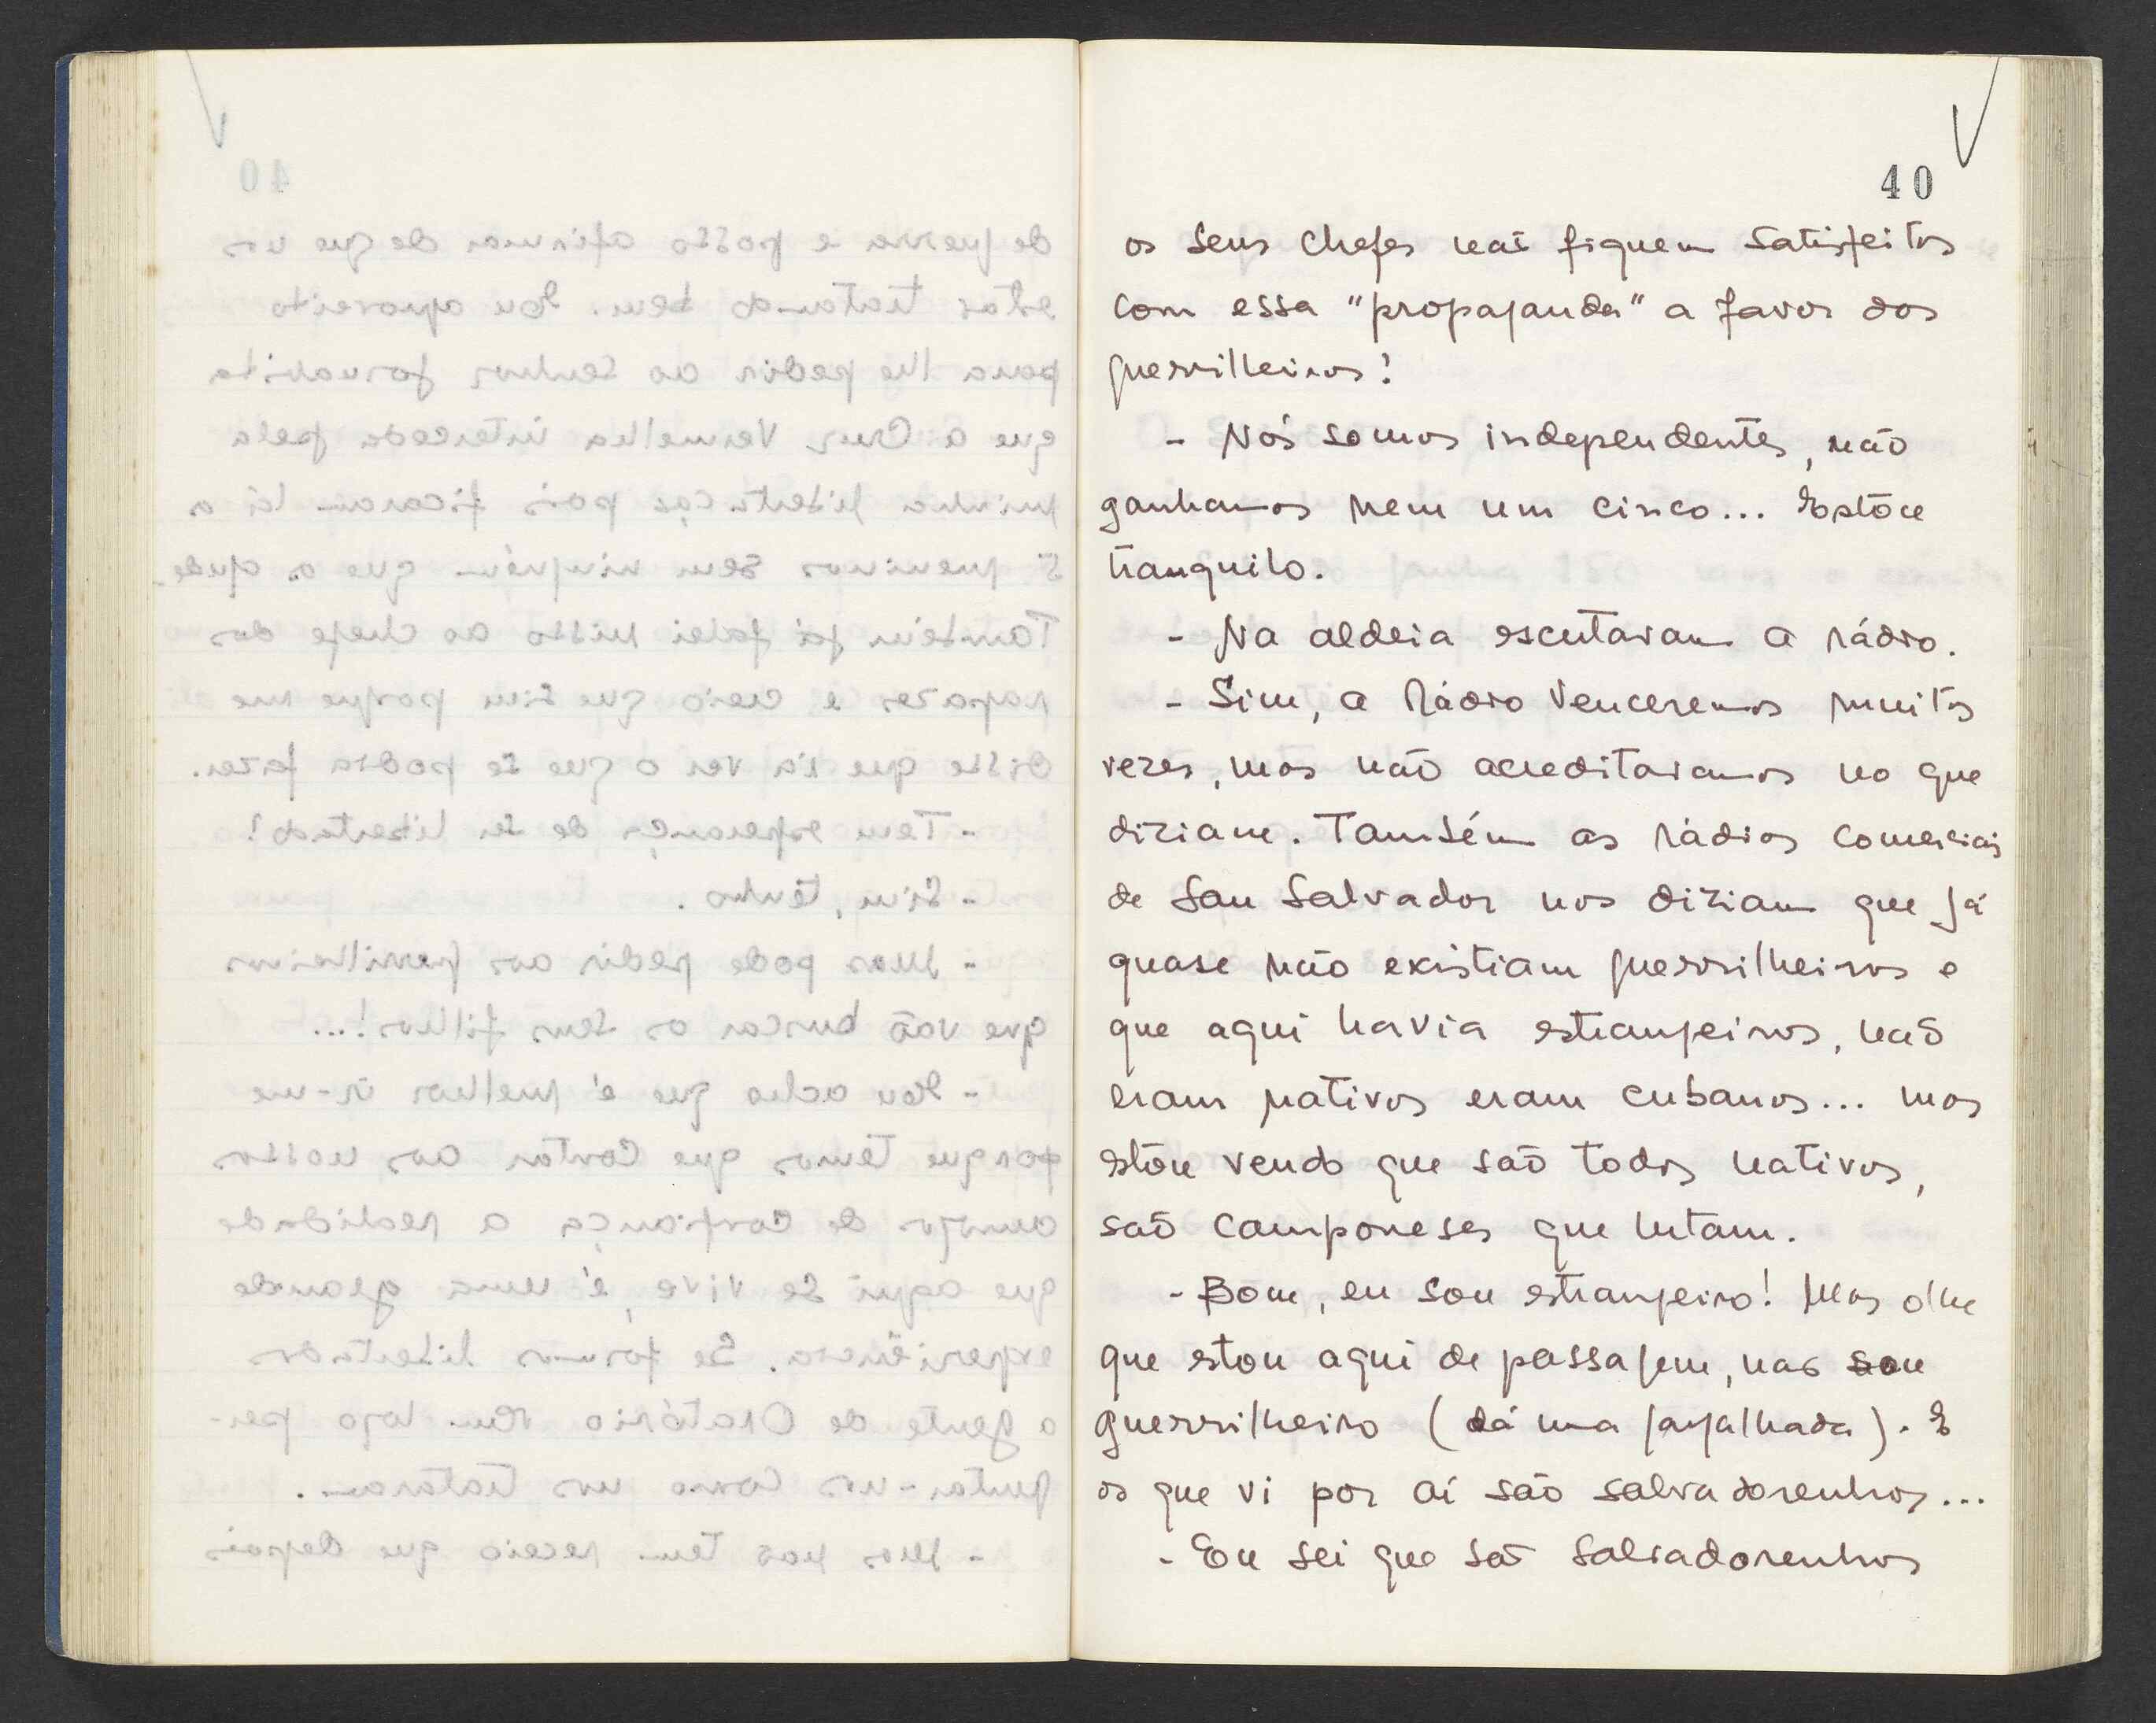 40
os seus chefes não fiquem satisfeitos
com essa "propaganda" a favor dos
guerrilheiros?
- Nós somos independentes, não
ganhamos nem um cinco... Estou
tranquilo.
- Na aldeia escutavam a rádio.
- Sim, a Rádio Venceremos muitas
vezes, mas não acreditavamos no que
diziam. Também as rádios comerciais
de San Salvador nos diziam que já
quase não existiam guerrilheiros e
que aqui havia estrangeiros, não
eram nativos eram cubanos... mas
estou vendo que são todos nativos,
são camponeses que lutam.
- Bom, eu sou estrangeiro! Mas olhe
que estou aqui de passagem, não sou
guerrilheiro (dá uma gargalhada). E
os que vi por aí são salvadorenhos...
- Eu sei que são salvadorenhos